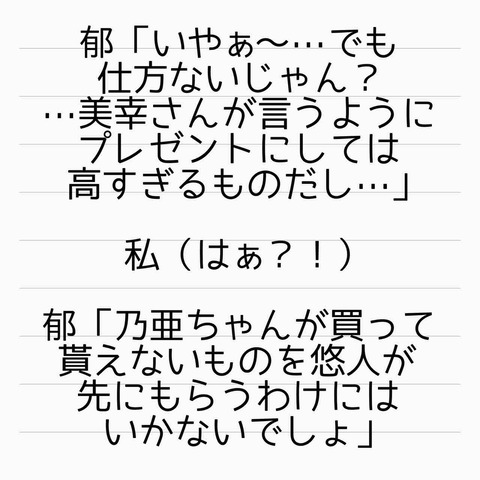 郁「いやぁ〜…でも
仕方ないじゃん？
…美幸さんが言うように
プレゼントにしては
高すぎるものだし…」
私（はぁ？！）
郁「乃亜ちゃんが買って
貰えないものを悠人が
先にもらうわけには
いかないでしょ」